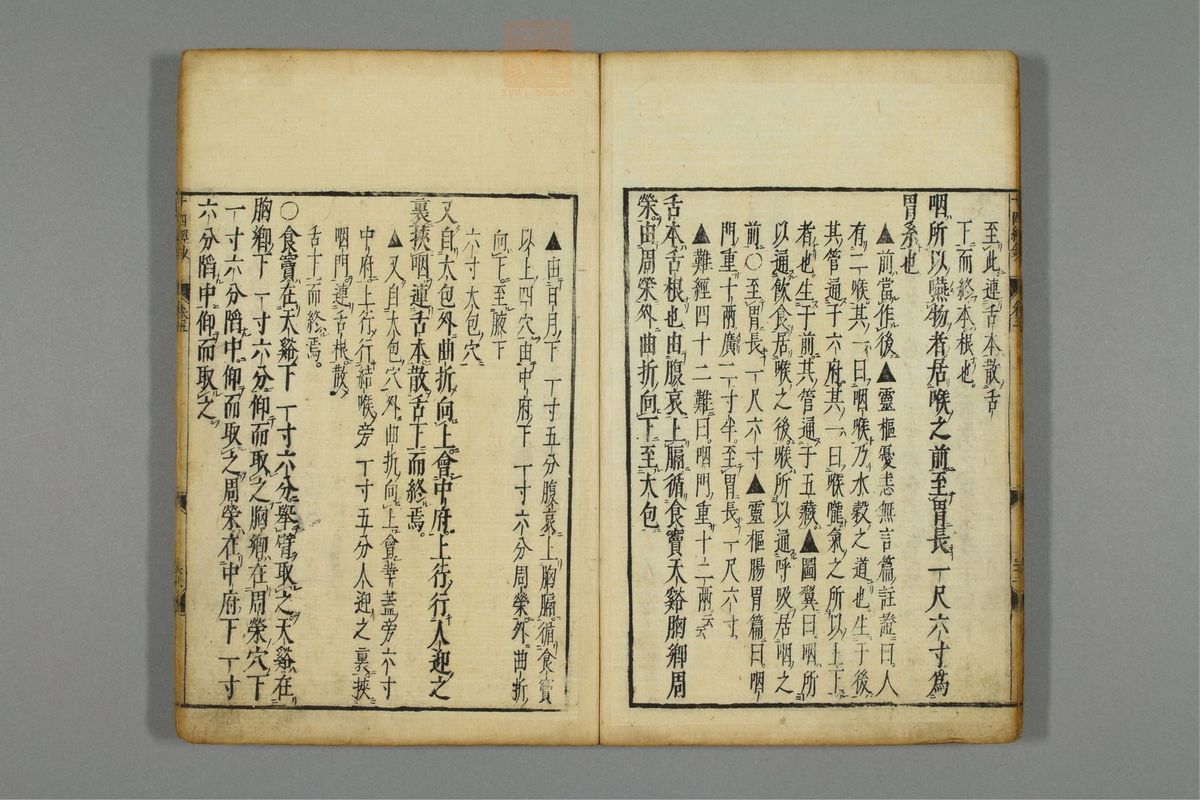 至此連舌本散舌
下而終本根也
咽所以嚥物者居喉之前至胃長一尺六寸爲
胃系也
▲前當作後▲靈樞憂恚無言篇註證曰人
有二喉其一曰咽喉乃水穀之道也生于後
其管通于六府其一曰喉嚨氣之所以上下
者也生于前其管通于五藏▲圖翼曰咽所
以通飲食居喉之後喉所以通呼吸居咽之
前○至胃長一尺六寸▲靈樞腸胃篇曰咽
門重十兩廣一寸半至胃長一尺六寸
▲難經四十二難曰咽門重十二兩云云
舌本舌根也由腹哀上膈循食竇天谿胸鄉周
榮由周榮外曲折向下至大包
▲由日月下一寸五分腹哀上胸膈循食竇
以上四穴由中府下一寸六分周榮外曲折
向下至腋下
六寸大包穴
又自大包外曲折向上會中府上行行人迎之
裏挾咽連舌本散舌下而終焉
▲又自大包穴外曲折向上會華蓋旁六寸
中府上行行結喉旁一寸五分人迎之裏挾
咽門連舌根散
舌下而終焉
○食竇在天谿下一寸六分舉臂取之天谿在
胸鄉下一寸六分仰而取之胸鄉在周榮穴下
一寸六分陷中仰而取之周榮在中府下一寸
六分陷中仰而取之